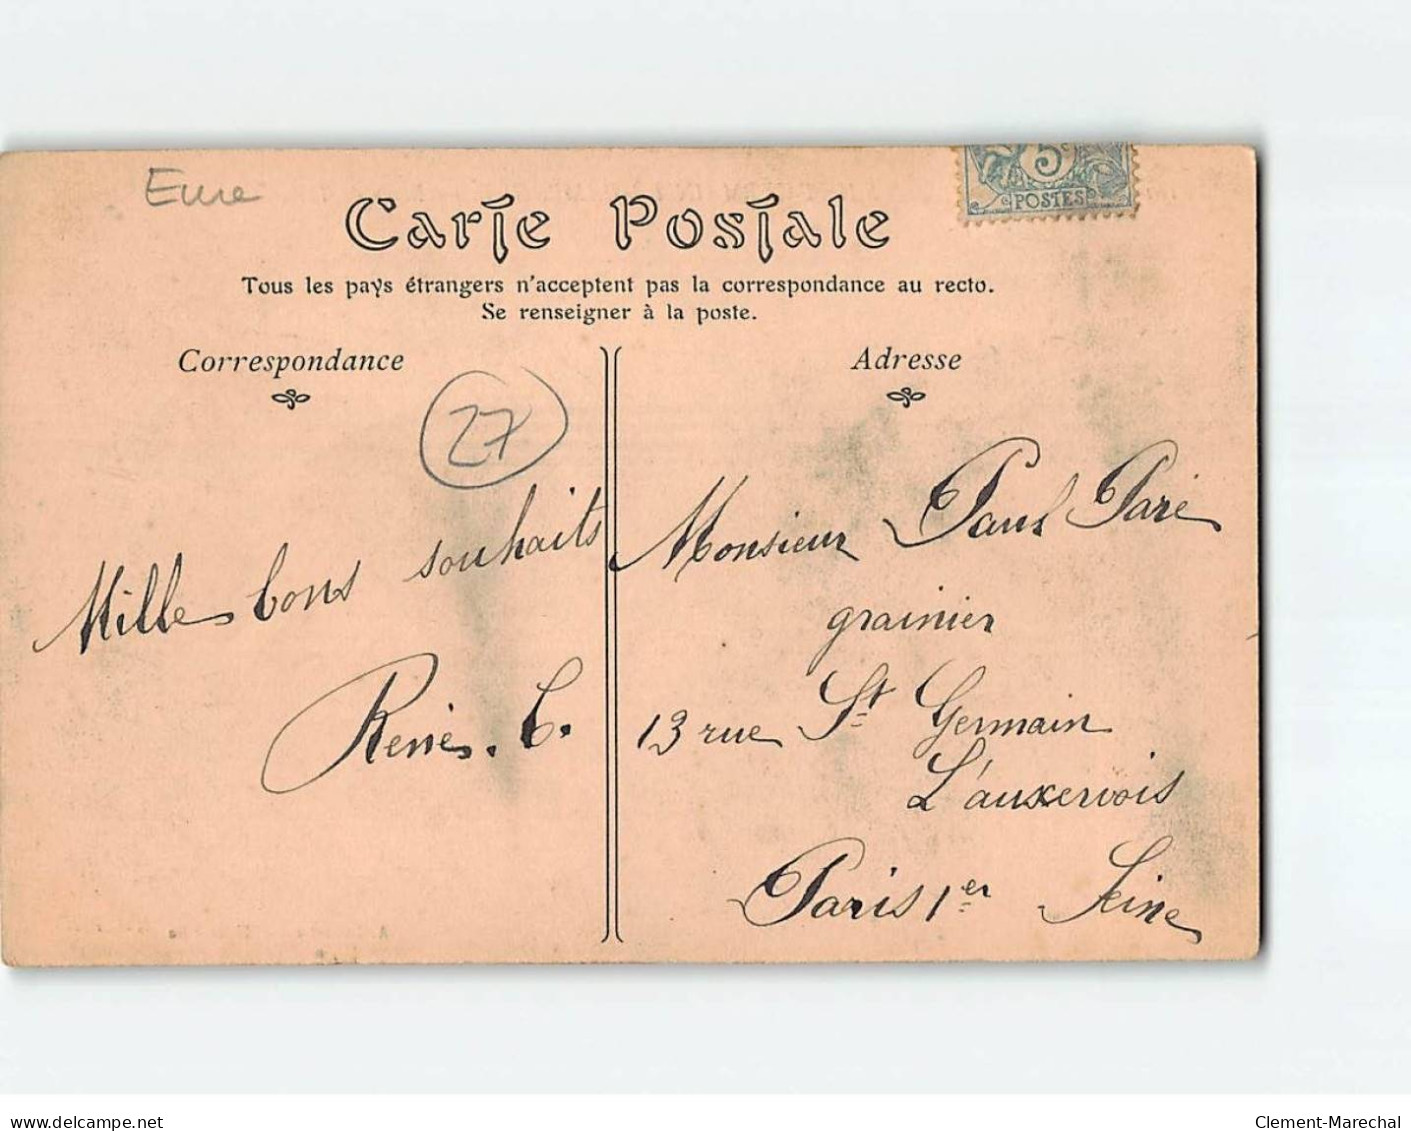 Eure
5c
POSTES
Carte Postale
Tous les pays étrangers n'acceptent pas la correspondance au recto.
Se renseigner à la poste.
Correspondance
Adresse
27
Mille bons souhaits
René. C.
Monsieur Paul Paré
grainier
13 rue St Germain
L'auxerrois
Paris 1er Seine
www.delcampe.net
Clement-Marechal